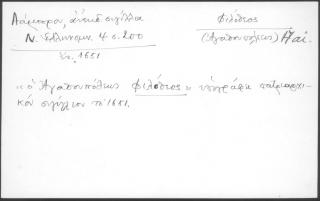 Λάμπρου, ἀνέκδ. σιγίλλια
Ν. Ἑλληνομν. 4 σ. 200
ἔτ. 1651
Φιλόθεος
(Ἀγαθουπόλεως)
«ὁ Ἀγαθουπόλεως Φιλόθεος» ὑπογράφει πατριαρχι-
κὸν σιγίλλιον τῷ 1651.